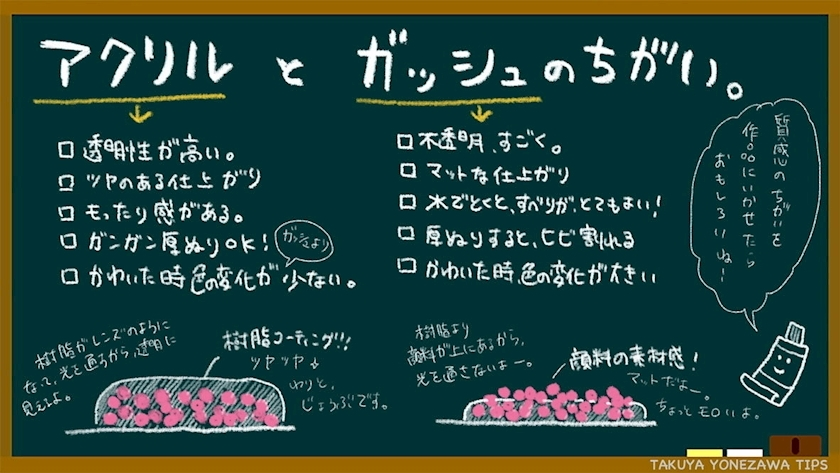 アクリル と ガッシュのちがい。
□ 透明性が高い。
□ ツヤのある仕上がり
□ もったり感がある。
□ ガンガン厚ぬりOK!
ガッシュより
□ かわいた時色の変化が少ない。
□ 不透明、すごく。
□ マットな仕上がり
□ 水でとくと、すべりが、とてもよい!
□ 厚ぬりすると、ヒビ割れる
□ かわいた時、色の変化が大きい
質感のちがいを
作品にいかせたら
おもしろいねー!
樹脂がレンズのように
なって、光を通るから、透明に
見えるよ。
樹脂コーティング!!!
ツヤツヤ↓
わりと、
じょうぶです。
樹脂より
顔料が上にあるから、
光を通さないよー。
顔料の素材感!
マットだよー。
ちょっとモロいよ。
TAKUYA YONEZAWA TIPS